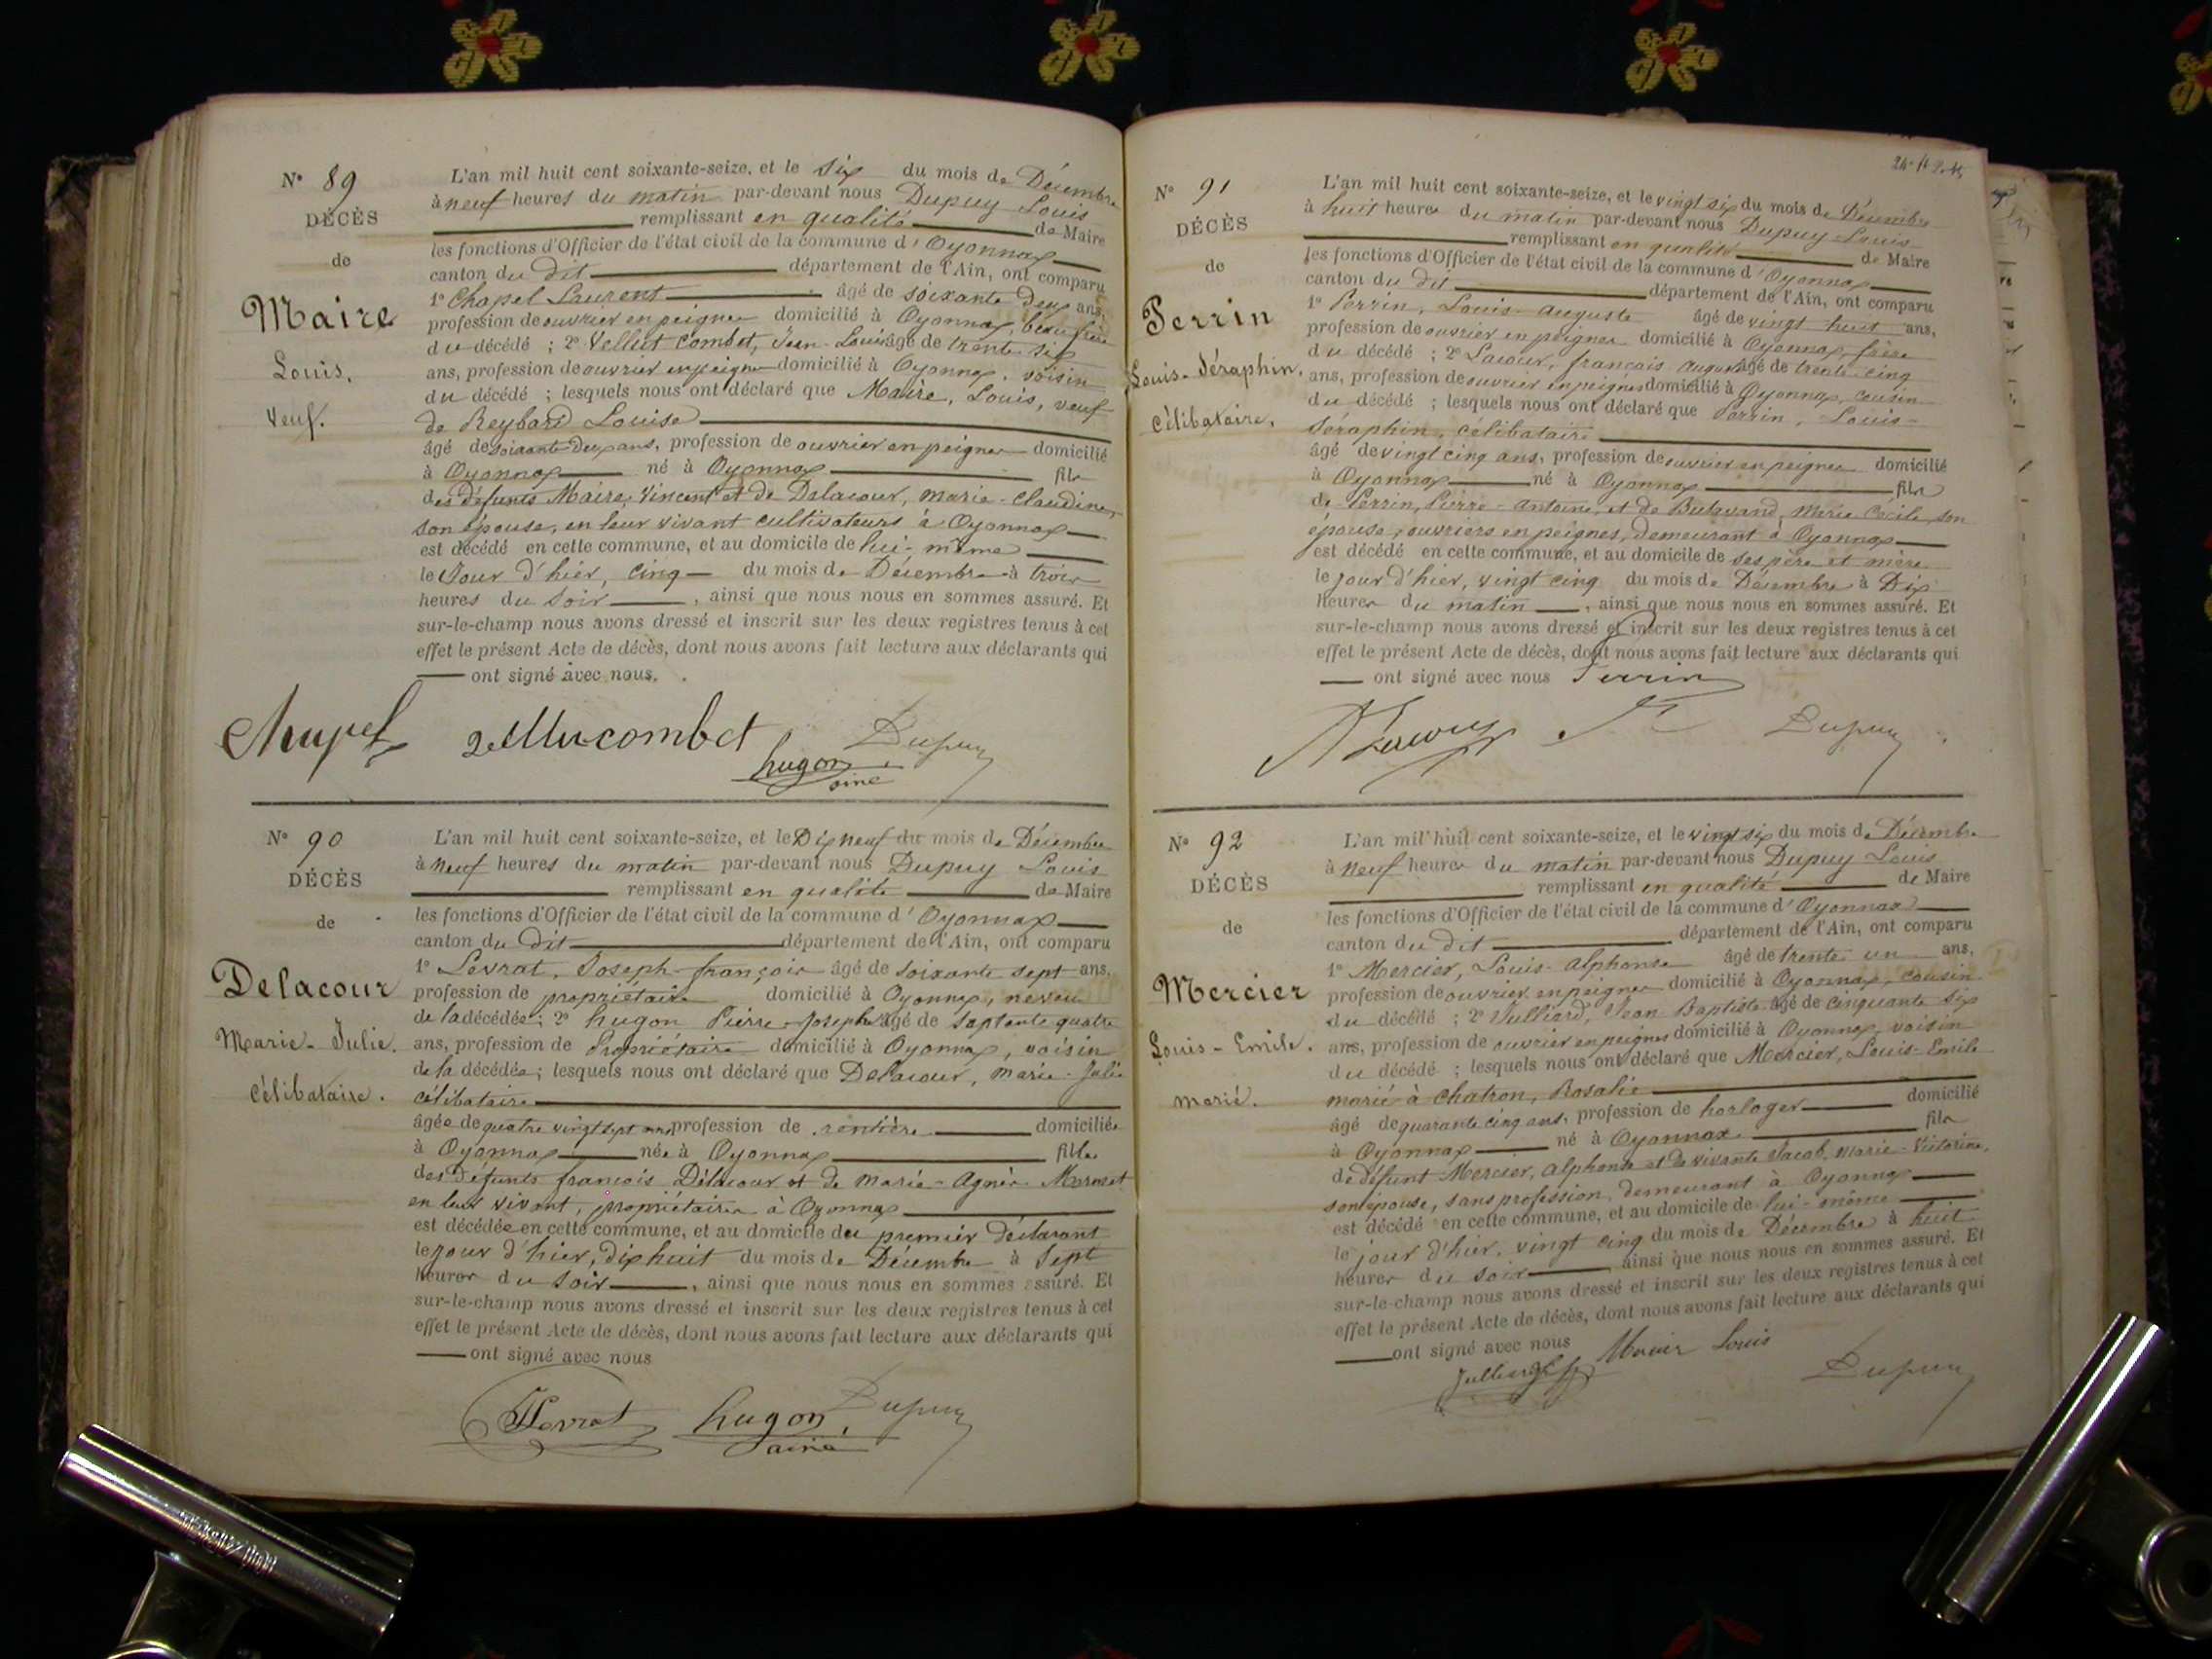 N° 89
DÉCÈS
de
Maire
Louis,
Veuf.
L'an mil huit cent soixante-seize, et le six du mois de Décembre
à neuf heures du matin par-devant nous Dupuy Louis
remplissant en qualité de Maire
les fonctions d'Officier de l'état civil de la commune d'Oyonnax
canton du dit département de l'Ain, ont comparu
1° Chapel Laurent âgé de soixante deux ans,
profession de ouvrier en peignes domicilié à Oyonnax, beau frère
du décédé ; 2° Vellut Combet, Jean-Louis âgé de trente six
ans, profession de ouvrier en peignes domicilié à Oyonnax, voisin
du décédé ; lesquels nous ont déclaré que Maire, Louis, veuf
de Reybard Louise
âgé de soixante deux ans, profession de ouvrier en peignes domicilié
à Oyonnax né à Oyonnax fils
des défunts Maire, Vincent et de Delacour, Marie-Claudine,
son épouse, en leur vivant cultivateurs à Oyonnax
est décédé en cette commune, et au domicile de lui-même
le jour d'hier, cinq du mois de Décembre à trois
heures du soir, ainsi que nous nous en sommes assuré. Et
sur-le-champ nous avons dressé et inscrit sur les deux registres tenus à cet
effet le présent Acte de décès, dont nous avons fait lecture aux déclarants qui
ont signé avec nous.
Chapel Dupuy
hugon
ainé
N° 90
DÉCÈS
de
Delacour
Marie-Julie.
Célibataire.
L'an mil huit cent soixante-seize, et le Dix neuf du mois de Décembre
à neuf heures du matin par-devant nous Dupuy Louis
remplissant en qualité de Maire
les fonctions d'Officier de l'état civil de la commune d'Oyonnax
canton du dit département de l'Ain, ont comparu
1° Levrat, Joseph-françois âgé de soixante sept ans,
profession de propriétaire domicilié à Oyonnax, neveu
de la décédée ; 2° hugon Pierre-Joseph âgé de septante quatre
ans, profession de Propriétaire domicilié à Oyonnax, voisin
de la décédée ; lesquels nous ont déclaré que Delacour, Marie-Julie
célibataire
âgée de quatre vingt sept ans profession de rentière domiciliée
à Oyonnax née à Oyonnax fille
des défunts françois Delacour et de Marie-Agnès Mermet
en leur vivant, propriétaires à Oyonnax
est décédée en cette commune, et au domicile du premier déclarant
le jour d'hier, dix huit du mois de Décembre à Sept
heures du soir, ainsi que nous nous en sommes assuré. Et
sur-le-champ nous avons dressé et inscrit sur les deux registres tenus à cet
effet le présent Acte de décès, dont nous avons fait lecture aux déclarants qui
ont signé avec nous
Levrat hugon Dupuy
ainé
N° 91
DÉCÈS
de
Perrin
Louis-Séraphin,
Célibataire.
L'an mil huit cent soixante-seize, et le vingt six du mois de Décembre
à huit heures du matin par-devant nous Dupuy Louis
remplissant en qualité de Maire
les fonctions d'Officier de l'état civil de la commune d'Oyonnax
canton du dit département de l'Ain, ont comparu
1° Perrin, Louis-Auguste âgé de vingt huit ans,
profession de ouvrier en peignes domicilié à Oyonnax, frère
du décédé ; 2° Lacour, françois August âgé de trente cinq
ans, profession de ouvrier en peignes domicilié à Oyonnax, cousin
du décédé ; lesquels nous ont déclaré que Perrin, Louis-
Séraphin, célibataire
âgé de vingt cinq ans, profession de ouvrier en peignes domicilié
à Oyonnax né à Oyonnax fils
de Perrin, Pierre-Antoine, et de Butavand, Marie Cécile, son
épouse, ouvriers en peignes, demeurant à Oyonnax
est décédé en cette commune, et au domicile de ses père et mère
le jour d'hier, vingt cinq du mois de Décembre à Dix
heures du matin, ainsi que nous nous en sommes assuré. Et
sur-le-champ nous avons dressé et inscrit sur les deux registres tenus à cet
effet le présent Acte de décès, dont nous avons fait lecture aux déclarants qui
ont signé avec nous Perrin
Dupuy
N° 92
DÉCÈS
de
Mercier
Louis-Emile.
marié.
L'an mil huit cent soixante-seize, et le vingt six du mois de Décembre
à neuf heures du matin par-devant nous Dupuy Louis
remplissant en qualité de Maire
les fonctions d'Officier de l'état civil de la commune d'Oyonnax
canton du dit département de l'Ain, ont comparu
1° Mercier, Louis-Alphonse âgé de trente un ans,
profession de ouvrier en peignes domicilié à Oyonnax, cousin
du décédé ; 2° Julliard, Jean Baptiste âgé de cinquante six
ans, profession de ouvrier en peignes domicilié à Oyonnax, voisin
du décédé ; lesquels nous ont déclaré que Mercier, Louis-Emile
marié à Chatron, Rosalie
âgé de quarante cinq ans, profession de horloger domicilié
à Oyonnax né à Oyonnax fils
de défunt Mercier, Alphonse et de vivante Jacob, Marie-Victorine,
son épouse, sans profession, demeurant à Oyonnax
est décédé en cette commune, et au domicile de lui-même
le jour d'hier, vingt cinq du mois de Décembre à huit
heures du soir, ainsi que nous nous en sommes assuré. Et
sur-le-champ nous avons dressé et inscrit sur les deux registres tenus à cet
effet le présent Acte de décès, dont nous avons fait lecture aux déclarants qui
ont signé avec nous Mercier Louis
Julliard Dupuy